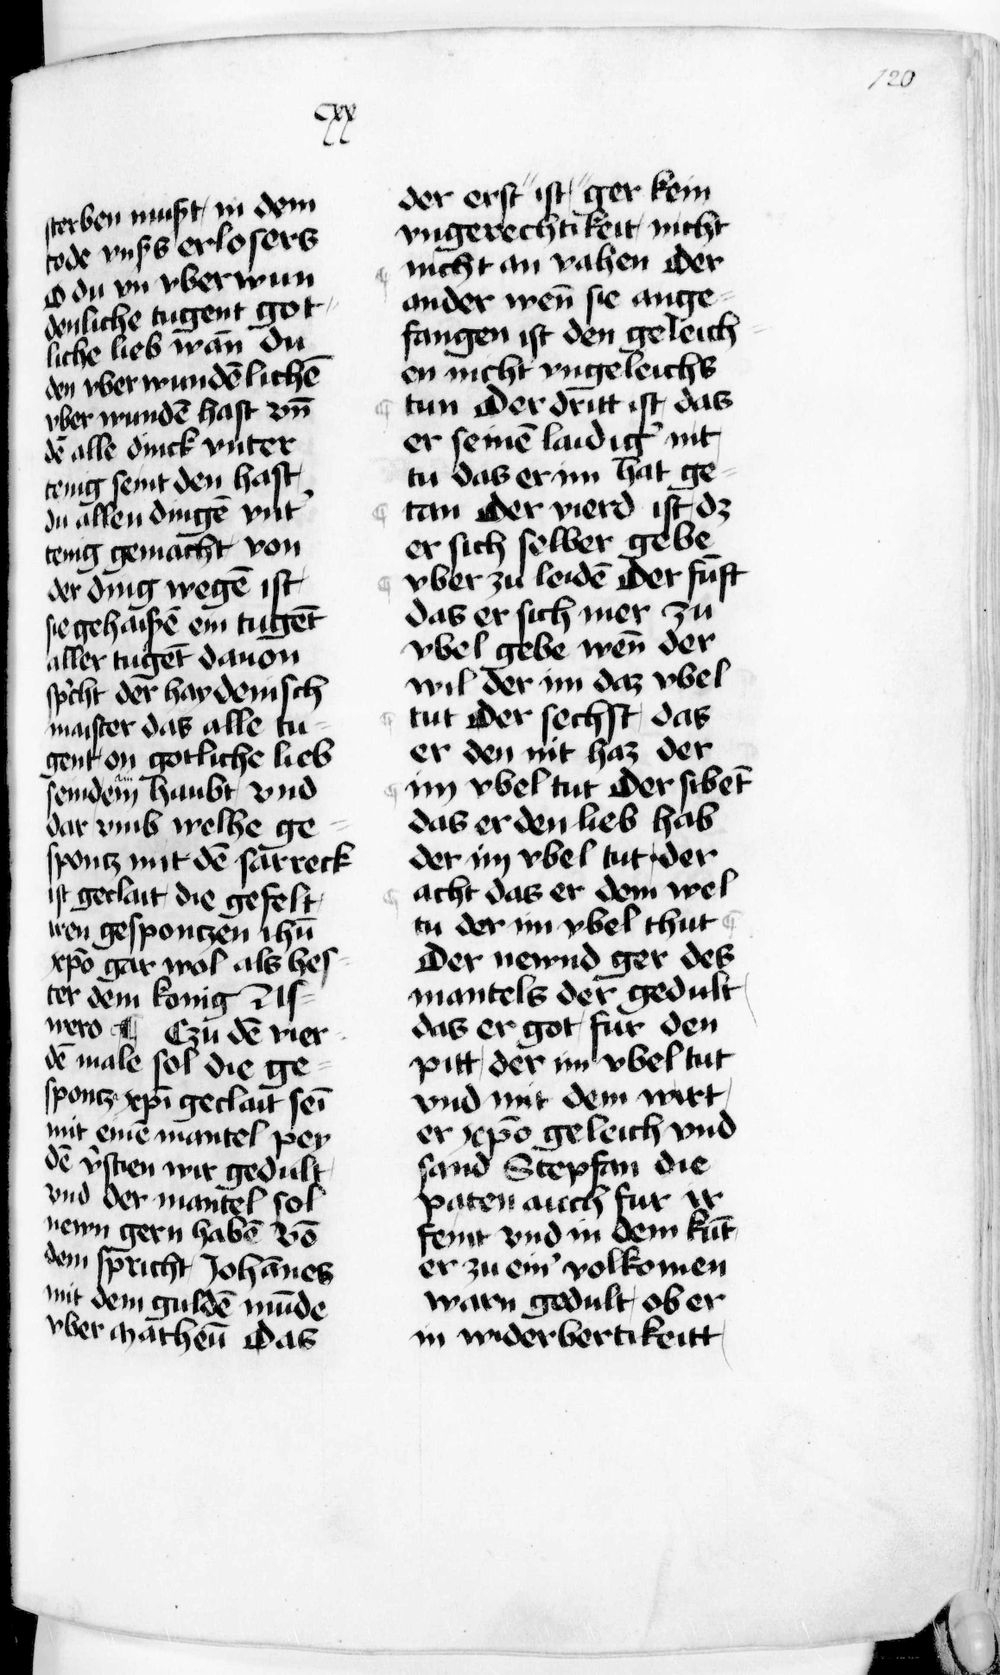 120
cxx
sterben mußt in dem
tode vnßs erlosers
O du vn vberwun
denliche tugent got-
liche lieb wān du
den vberwundēlichē
vber wundē hast vn̄
dē alle dinck vnter
tenig seint den hast
du allen dingē vnt'
tenig gemacht von
der ding wegē ist
sie gehaißē ein tugēt
aller tugēt dauon
sp'cht der haydenisch
maister das alle tu-
gent on gotliche lieb
sein dem haubt vnd
dar vmb welhe ge-
spontz mit dē sarreck
ist geclait die gefelt
iren gespontzen ihū
xp̄o gar wol als hes-
ter dem konig As-
wero ¶ Czu dē vier
dē male sol die ge-
spontz xp̄i geclait sei
mit einē mantel pey
dē v'stien wir gedult
vnd der mantel sol
newn gern habē vō
dem spricht Johānes
mit dem guldē mūde
vber matheū Das
der erst ist ger kein
vngerechtikeit nicht
nicht an vahen Der
ander wen̄ sie ange-
fangen ist den geleich-
en nicht vngeleichs
tun Der dritt ist das
er seinē laidig' nit
tu das er im hat ge-
tan Der vierd ist dz
er sich selber gebe
vber zu leidē Der fūft
das er sich mer zu
vbel gebe wen̄ der
wil der im daz vbel
tut Der sechst das
er den nit haz der
im vbel tut Der sibēt
das er den lieb hab
der im vbel tut der
acht das er dem wel
tu der im vbel thut ¶
Der newnd ger des
mantels der gedult
das er got fur den
pitt der im vbel tut
vnd mit dem wirt
er xp̄o geleich vnd
sand Stepfan die
paten auch fur ir
feint vnd in dem kūt
er zu ein' volkomen
warn gedult ob er
in widerbertikeitt